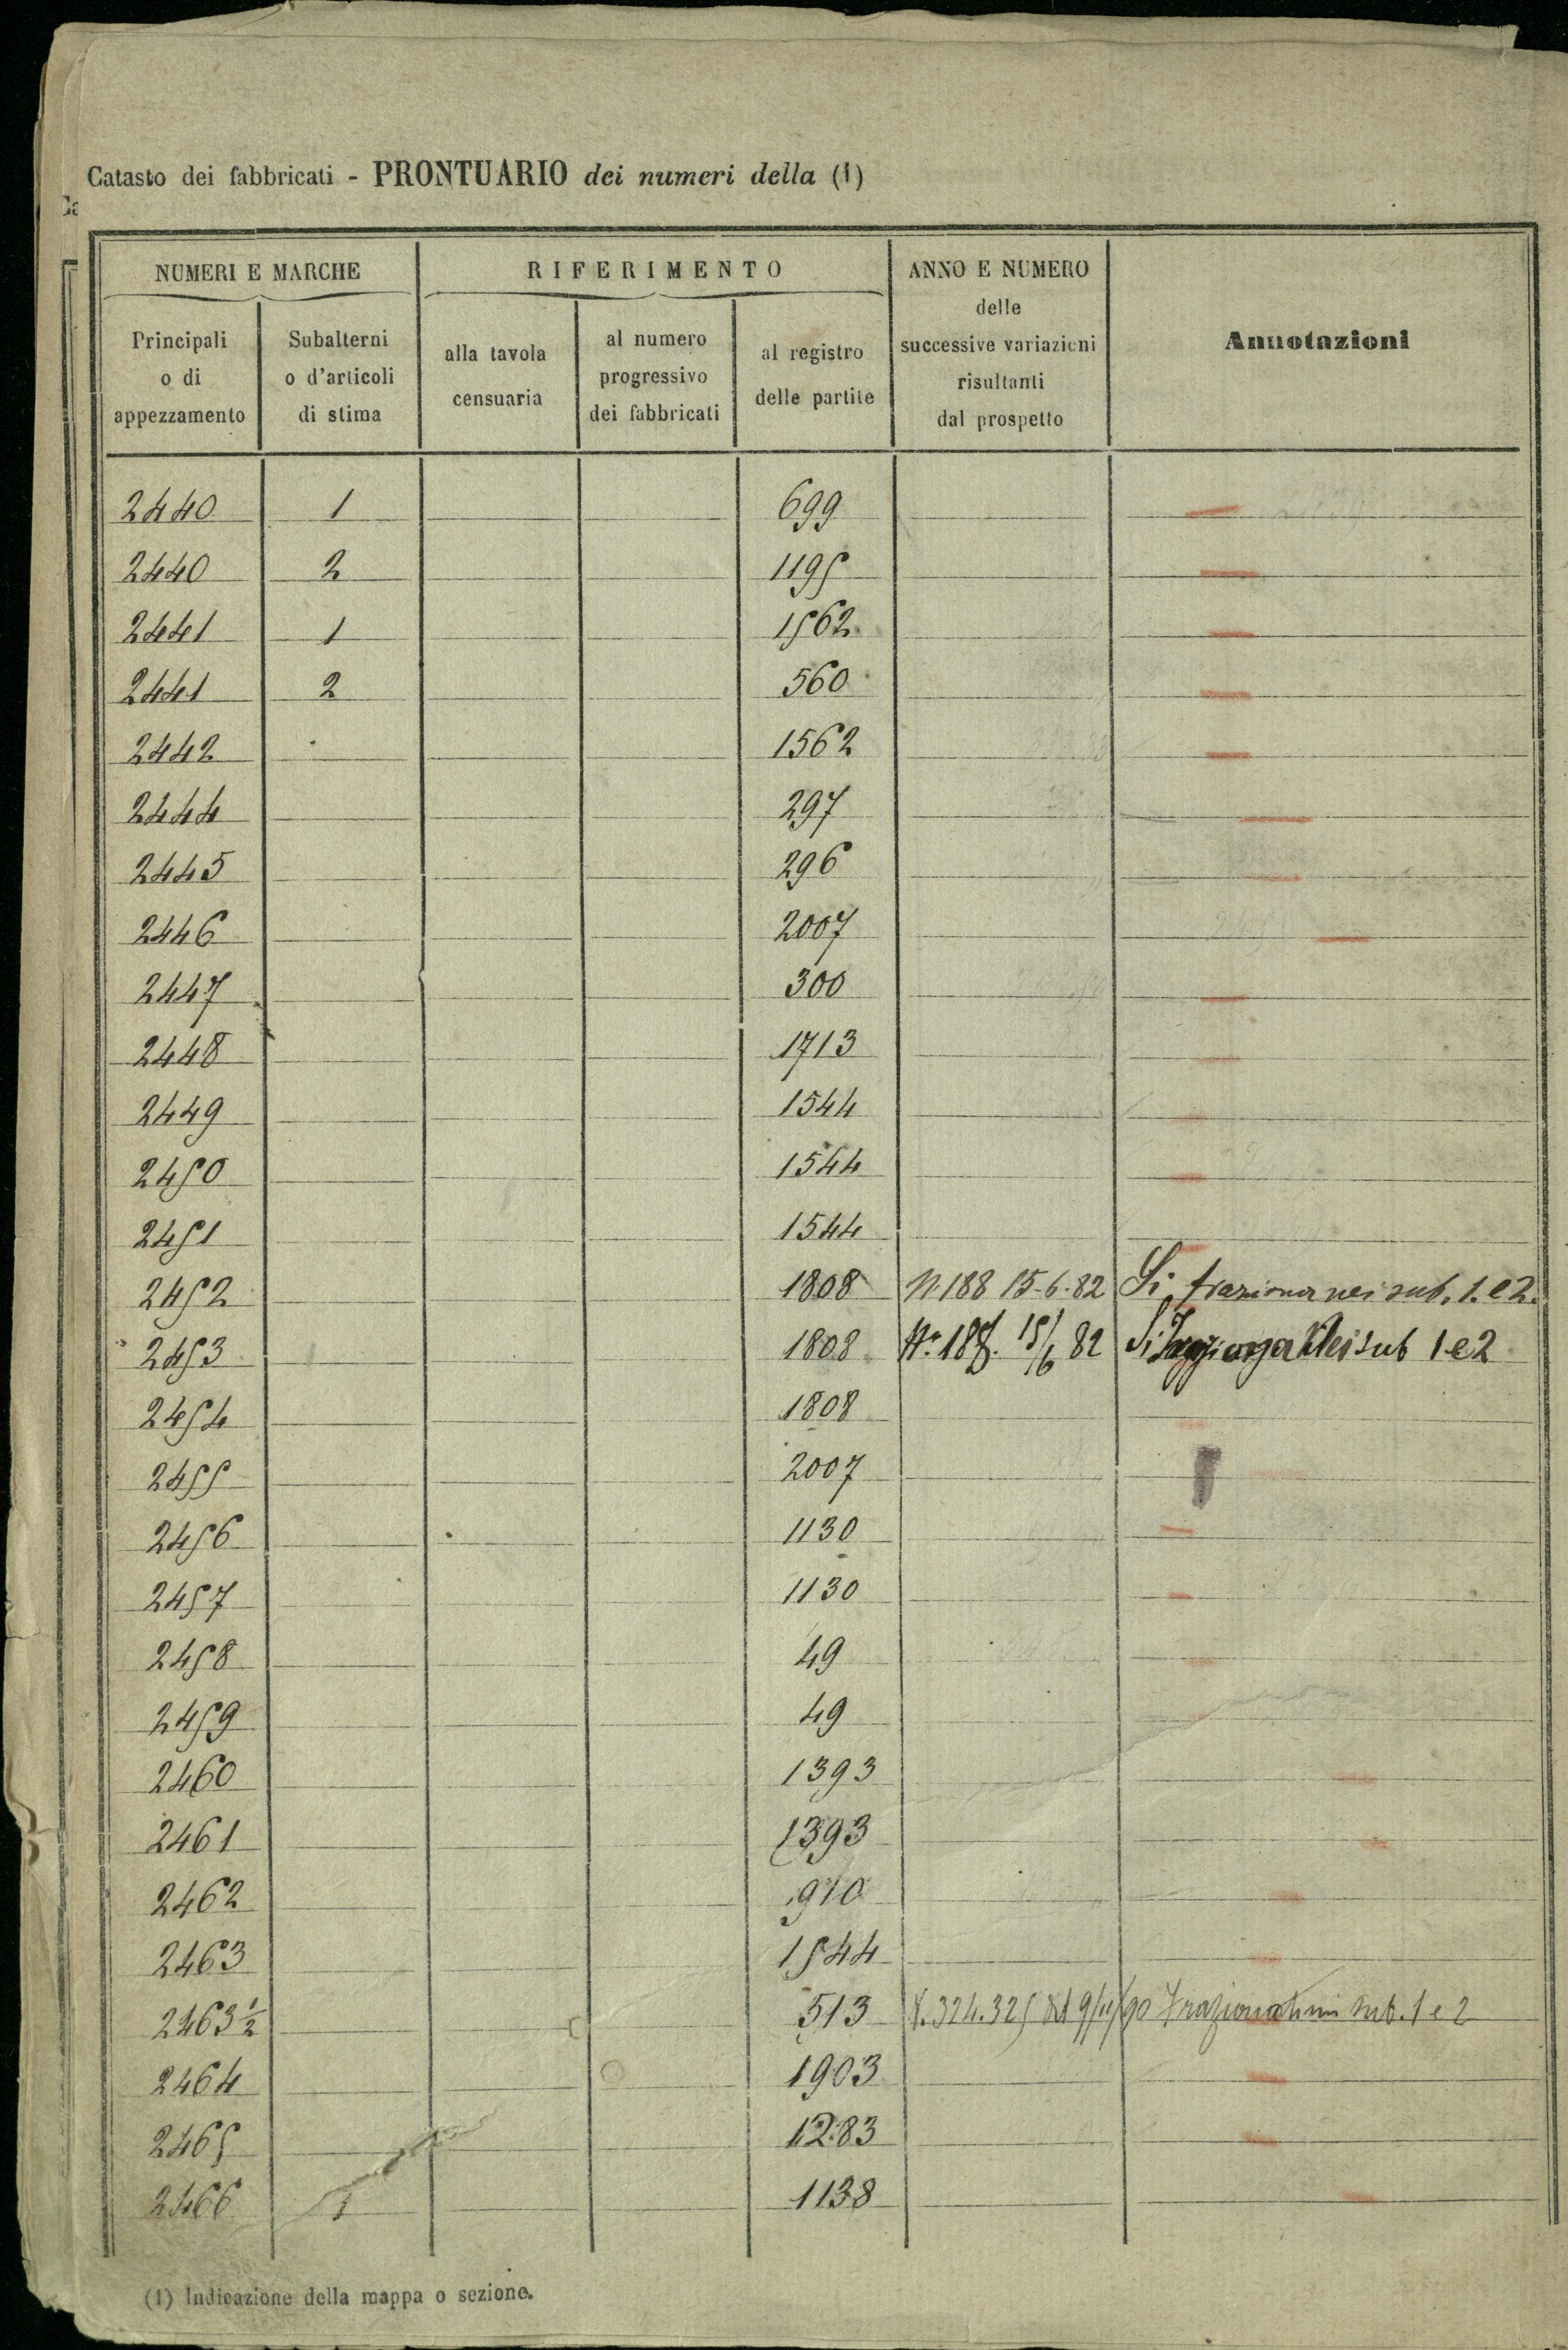 Catasto dei fabbricati - PRONTUARIO dei numeri della (1)
NUMERI E MARCHE RIFERIMENTO ANNO E NUMERO delle successive variazioni risultanti dal prospetto Annotazioni
Principali o di appezzamento Subalterni o d'articoli di stima alla tavola censuaria al numero progressivo dei fabbricati al registro delle partite
2440 1 699
2440 2 1195
2441 1 1562
2441 2 560
2442 1562
2444 297
2445 296
2446 2007
2447 300
2448 1713
2449 1544
2450 1544
2451 1544
2452 1808 N. 188 15-6-82 Si fraziona nei sub. 1. e 2.
2453 1808 N. 15/6 82 Si nei sub 1 e 2
2454 1808
2455 2007
2456 1130
2457 1130
2458 49
2459 49
2460 1393
2461 1393
2462 910
2463 1544
2463 1/2 513 N. 324. 325 del 9/11/90 sub. 1 e 2
2464 1903
2465 1283
2466 1 1138
(1) Indicazione della mappa o sezione.